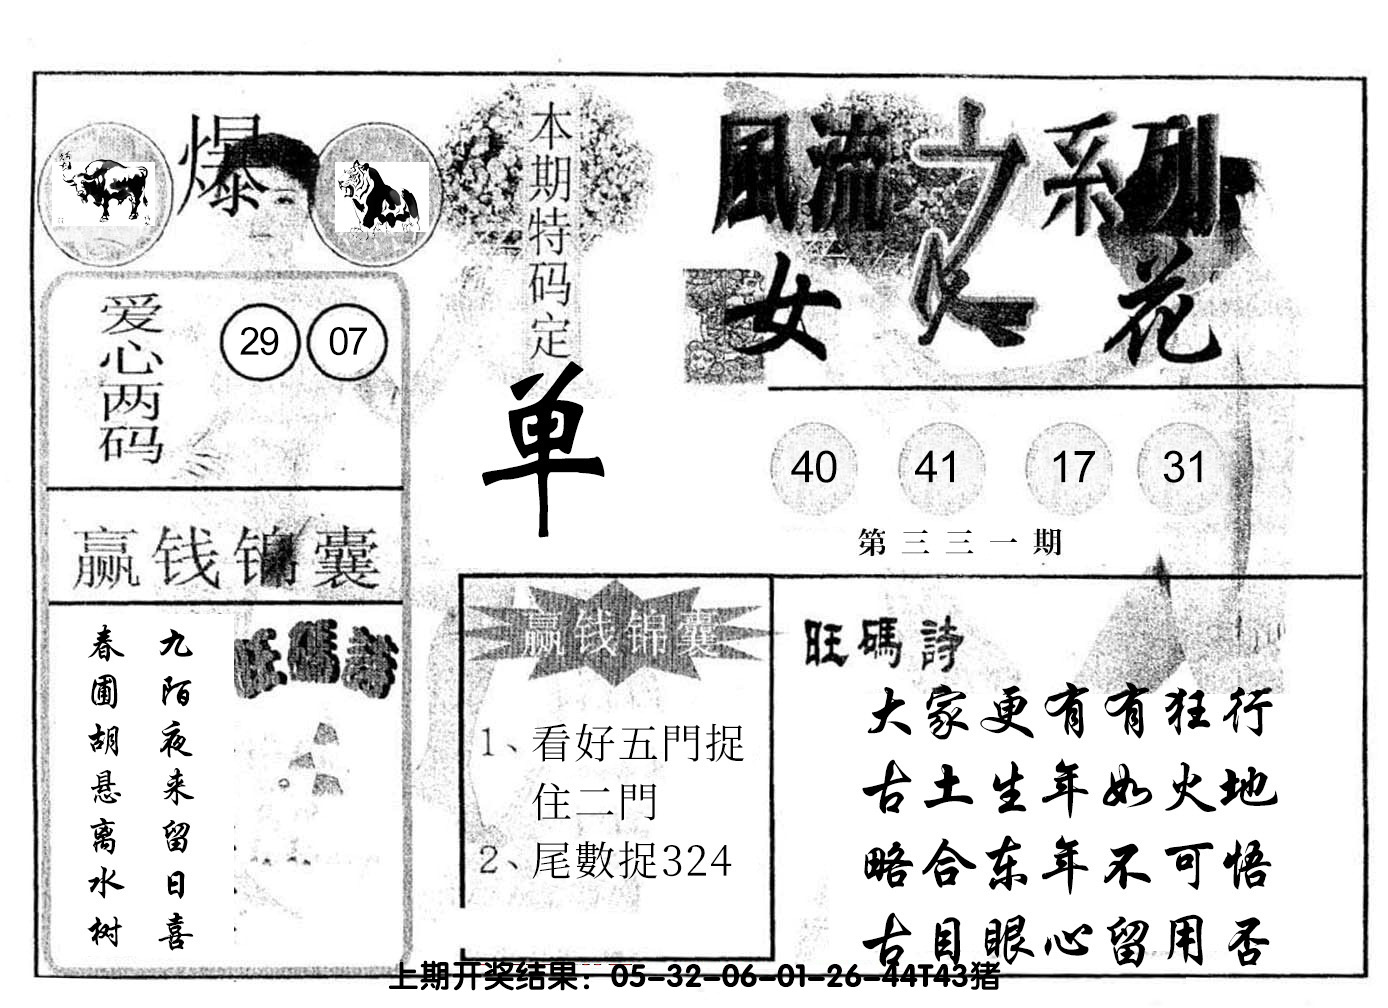 爆
本期特码定
单
風流之系列
女人花
爱心两码
29 07
40 41 17 31
第三三一期
赢钱锦囊
九陌夜来留日喜
春圃胡悬离水树
旺碼詩
赢钱锦囊
1、看好五門捉
住二門
2、尾數捉324
旺碼詩
大家更有有狂行
古土生年如火地
略合东年不可悟
古目眼心留用否
上期开奖结果：05-32-06-01-26-44T43猪